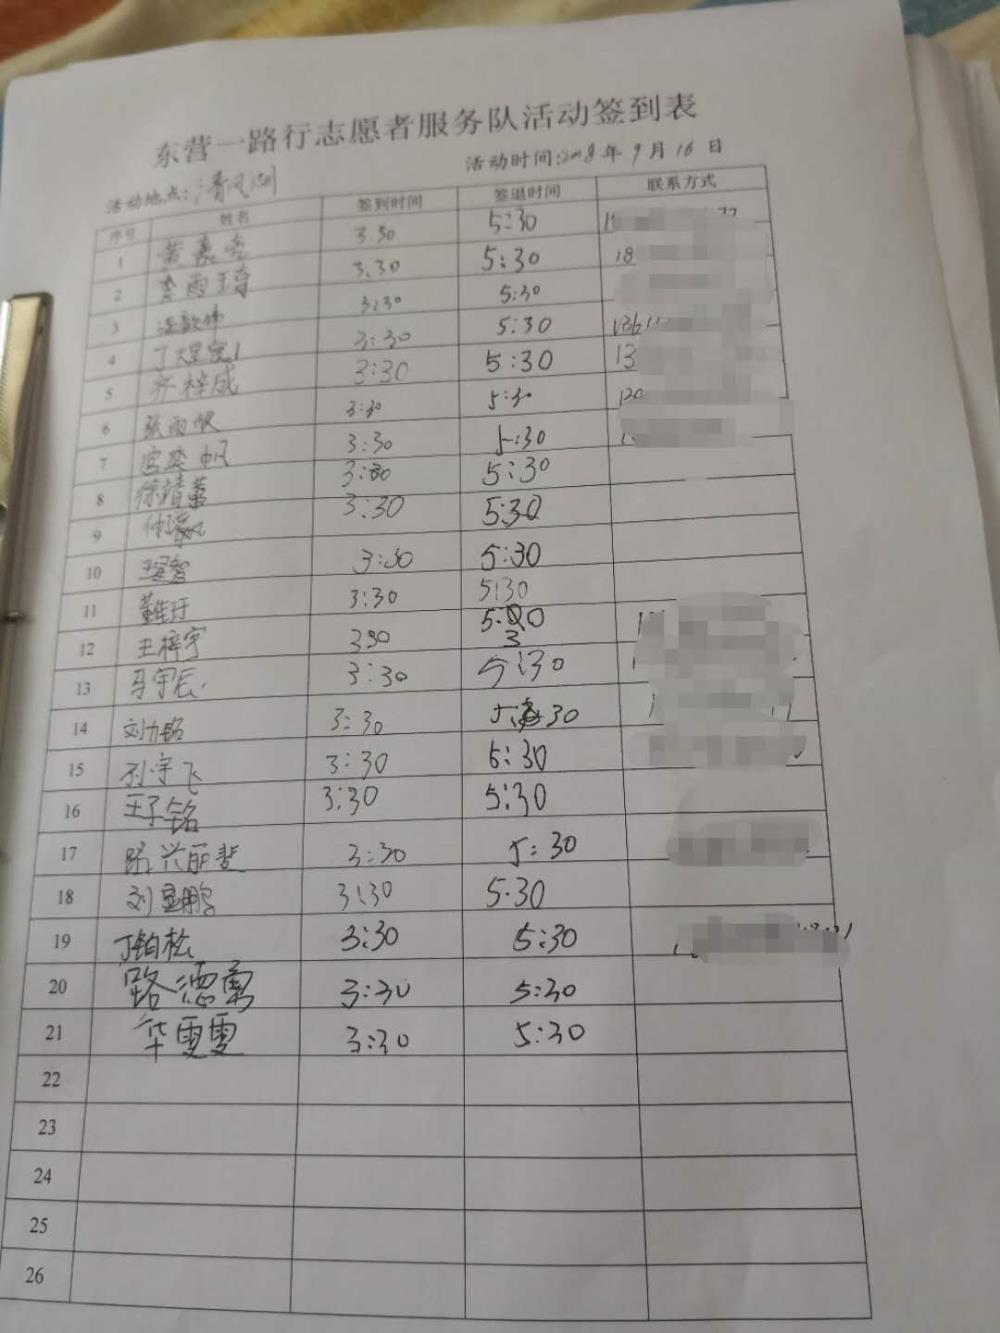 东营一路行志愿者服务队活动签到表
活动地点:清风湖 活动时间:2018年9月16日
序号 姓名 签到时间 签退时间 联系方式
1 黄嘉 3.30 5:30
2 李雨 3.30 5:30 18
3 3:30 5:30
4 丁 3:30 5:30 136
5 齐梓成 3:30 5:30 13
6 张雨 3:30 5:30
7 宫奕帆 3:30 5:30
8 徐靖 3:30 5:30
9 3:30 5:30
10 3:30 5:30
11 董 3:30 5:30
12 王梓宇 330 5:30
13 马宇辰 3:30 5:30
14 刘力铭 3:30 5:30
15 孙宇飞 3:30 5:30
16 王子铭 3:30 5:30
17 路兴丽斐 3:30 5:30
18 刘显鹏 3:30 5.30
19 丁铂松 3:30 5:30
20 路德勇 3:30 5:30
21 华雯雯 3:30 5:30
22
23
24
25
26